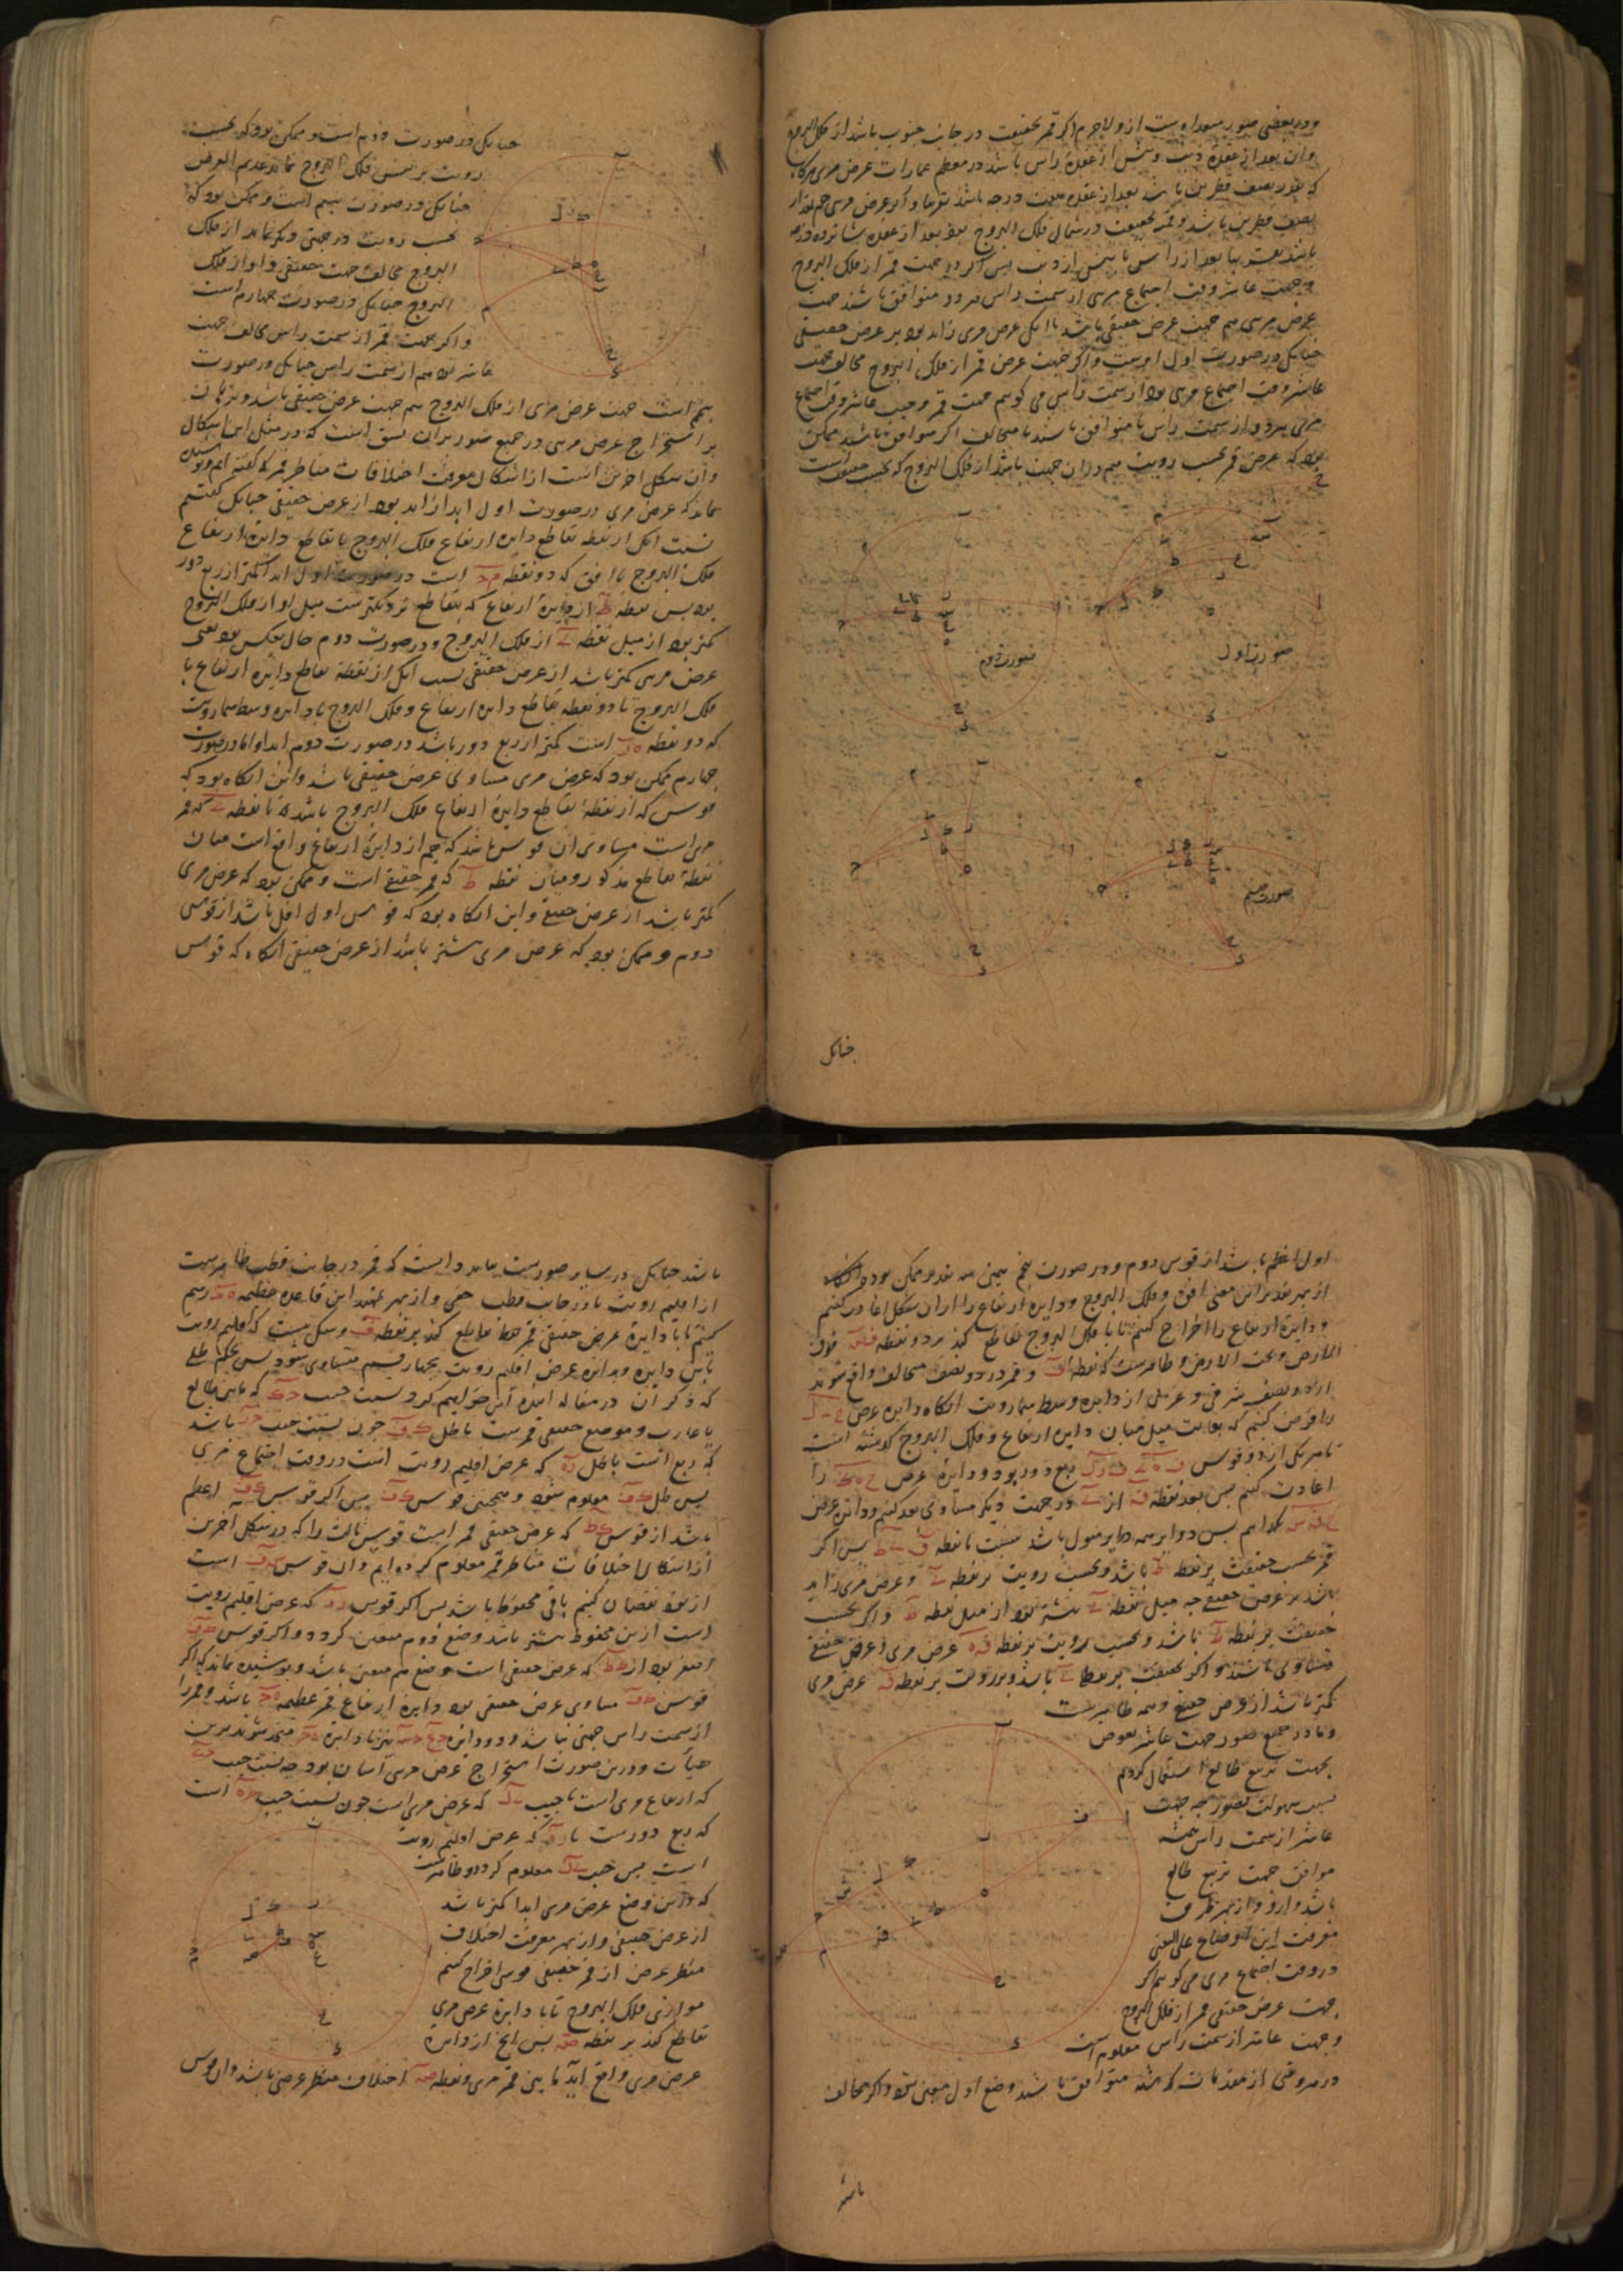 ودر بعضی صور مبداء است از و لاجرم اگر قمر بحقیقت در جانب جنوب باشد از فلک البروج
وان بعد از عقدهٔ ذنب و پیش از عقدهٔ راس باشد در معظم عمارات عرض مرئی
که بقدر نصف قطرین باشد بعد از عقده هفت درجه باشد تقریبا و اگر عرض مرئی هم بمقدار
نصف قطرین باشد و قمر بحقیقت در شمال فلک البروج بود بعد از عقده شانزده درجه
باشد تقریبا بعد از راس یا پیش از ذنب پس اگر جهت قمر از فلک البروج
و جهت عاشر وقت اجتماع مرئی از سمت راس هر دو متوافق باشند جهت
عرض مرئی هم جهت عرض حقیقی باشد با انک عرض مرئی زاید بود بر عرض حقیقی
چنانک در صورت اول است و اگر جهت عرض قمر از فلک البروج مخالف جهت
عاشر وقت اجتماع مرئی بود از سمت راس می کویم جهت قمر و جهت عاشر وقت اجتماع
مرئی هر دو از سمت راس یا متوافق باشند یا متخالف اگر متوافق باشد ممکن
بود که عرض قمر بحسب رویت هم در ان جهت باشد از فلک البروج که بحسب حقیقت است
صورت اول
صورت دوم
صورت سیم
چنانک
چنانک در صورت دوم است و ممکن بود که بحسب
رویت بر نفس فلک البروج نماید عدیم العرض
چنانک در صورت سیم است و ممکن بود که
بحسب رویت در جهتی دیگر نماید از فلک
البروج مخالف جهت حقیقی او از فلک
البروج چنانک در صورت چهارم است
و اگر جهت قمر از سمت راس مخالف جهت
عاشر بود هم از سمت راس چنانک در صورت
پنجم است جهت عرض مرئی از فلک البروج هم جهت عرض حقیقی باشد و برهان
بر استخراج عرض مرئی در جمیع صور بران نسق است که در مثل این اشکال
وان شکل اخرین است از اشکال معرفت اختلافات مناظر قمر که گفته ایم و پوشیده
نماند که عرض مرئی در صورت اول ابدا زاید بود از عرض حقیقی چنانک گفتیم
بسبب انک از نقطه تقاطع دایره ارتفاع فلک البروج با تقاطع دایره ارتفاع
فلک البروج با افق که دو نقطه است در صورت اول ابدا کمتر از ربع دور
بود پس نقطه ط از دایرهٔ ارتفاع که بتقاطع نزدیکترست میل او از فلک البروج
کمتر بود از میل نقطه از فلک البروج و در صورت دوم حال بعکس بود یعنی
عرض مرئی کمتر باشد از عرض حقیقی بسبب انک از نقطه تقاطع دایره ارتفاع با
فلک البروج تا دو نقطه تقاطع دایره ارتفاع و فلک البروج با دایره وسط سماء رویت
که دو نقطه است کمتر از ربع دور باشد در صورت دوم ابدا و اما در صورت
چهارم ممکن بود که عرض مرئی مساوی عرض حقیقی باشد و این انکاه بود که
قوس که از نقطهٔ تقاطع دایرهٔ ارتفاع فلک البروج باشد تا نقطه که قمر
مرئی است مساوی ان قوس باشد که هم از دایرهٔ ارتفاع واقع است میان
نقطهٔ تقاطع مذکور و میان نقطه ط که قمر حقیقی است و ممکن بود که عرض مرئی
کمتر باشد از عرض حقیقی و این انکاه بود که قوس اول اقل باشد از قوس
دوم و ممکن بود که عرض مرئی بیشتر باشد از عرض حقیقی انکاه که قوس
اول اعظم باشد از قوس دوم و در صورت پنجم همین سه تقدیر ممکن بود
از بهر تقدیر این معنی افق و فلک البروج و دایره ارتفاع را از ان شکل اعادت کنیم
و دایرهٔ ارتفاع را اخراج کنیم تا با فلک البروج تقاطع کند بر دو نقطه فوق
الارض و تحت الارض و ظاهرست که نقطه و قمر در دو نصف متخالف واقع شوند
از دو نصف شرقی و غربی از دایره وسط سماء رویت انکاه دایره عرض
را فرض کنیم که بغایت میل میان دایره ارتفاع و فلک البروج گذشته است
تا هر یکی از دو قوس ربع دور بود و دایرهٔ عرض را
اعادت کنیم پس بعد نقطه از در جهت دیگر مساوی بعد کنیم و دایره عرض
کذاریم پس دوایر سه دوایر میول باشد نسبت با نقطه پس اگر
قمر بحسب حقیقت بر نقطه ط باشد و بحسب رویت بر نقطه و عرض مرئی زاید
باشد بر عرض حقیقی چه میل نقطه بیشتر بود از میل نقطه ط و اگر بحسب
حقیقت بر نقطه ط باشد و بحسب رویت بر نقطه عرض مرئی و عرض حقیقی
متساوی باشند و اگر بحقیقت بر نقطه باشد و برویت بر نقطه عرض مرئی
کمتر باشد از عرض حقیقی و همه ظاهرست
و ما در جمیع صور جهت عاشر بعوض
جهت تربیع طالع استعمال کردیم
بسبب سهولت تصور چه جهت
عاشر از سمت راس همیشه
موافق جهت تربیع طالع
باشد از و و از بهر طریق
معرفت این اوضاع علی التعیین
در وقت اجتماع مرئی می کویم اگر
جهت عرض حقیقی قمر از فلک البروج
و جهت عاشر از سمت راس معلوم است
در هر وقتی از مقدمات گذشته متوافق باشند وضع اول معین شود و اگر مخالف
باشد
باشد چنانک در سایر صورست بباید دانست که قمر در جانب قطب ظاهرست
از اقلیم رویت یا در جانب قطب خفی و از بهر تمهید این قاعده عظیمه رسم
کنیم تا با دایرهٔ عرض حقیقی قمر تقاطع کند بر نقطه و شکی نیست که اقلیم رویت
باین دایره و بدایره عرض اقلیم رویت بچهار قسم متساوی شود پس بحکم ظلی
که ذکر ان در مقاله اینده خواهیم کرد نسبت جیب که مابین طالع
یا غارب و موضع حقیقی قمرست با ظل چون نسبت جیب باشد
که ربع است با ظل که عرض اقلیم رویت است در وقت اجتماع مرئی
پس ظل معلوم شود و همچنین قوس پس اگر قوس اعظم
باشد از قوس که عرض حقیقی قمر است قوس ثالث را که در شکل اخرین
از اشکال اختلافات مناظر قمر معلوم کرده ایم وان قوس است
از نود نقصان کنیم باقی محفوظ باشد پس اگر قوس که عرض اقلیم رویت
است ازین محفوظ بیشتر باشد وضع دوم متعین گردد و اگر قوس
اصغر بود از که عرض حقیقی است وضع پنجم متعین باشد و پوشیده نماند که اگر
قوس مساوی عرض حقیقی بود دایرهٔ ارتفاع قمر عظیمه باشد و قمر را
از سمت راس جهتی نباشد و دو دایره نیز با دایره متحد شوند برین
هیأت و درین صورت استخراج عرض مرئی آسان بود چه نسبت جیب
که ارتفاع مرئی است با جیب که عرض مرئی است چون نسبت جیب است
که ربع دورست با که عرض اقلیم رویت
است پس جیب معلوم گردد و ظاهرست
که درین وضع عرض مرئی ابدا کمتر باشد
از عرض حقیقی و از بهر معرفت اختلاف
منظر عرض از قمر حقیقی قوسی اخراج کنیم
موازی فلک البروج تا با دایرهٔ عرض مرئی
تقاطع کند بر نقطه پس انج از دایرهٔ
عرض مرئی واقع آید مابین قمر مرئی و نقطه اختلاف منظر عرض باشد وان قوس